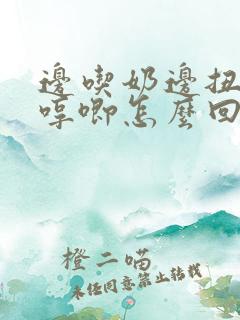 邊喫奶邊扭
哼唧怎麼回
橙二喵
未经同意禁止转载